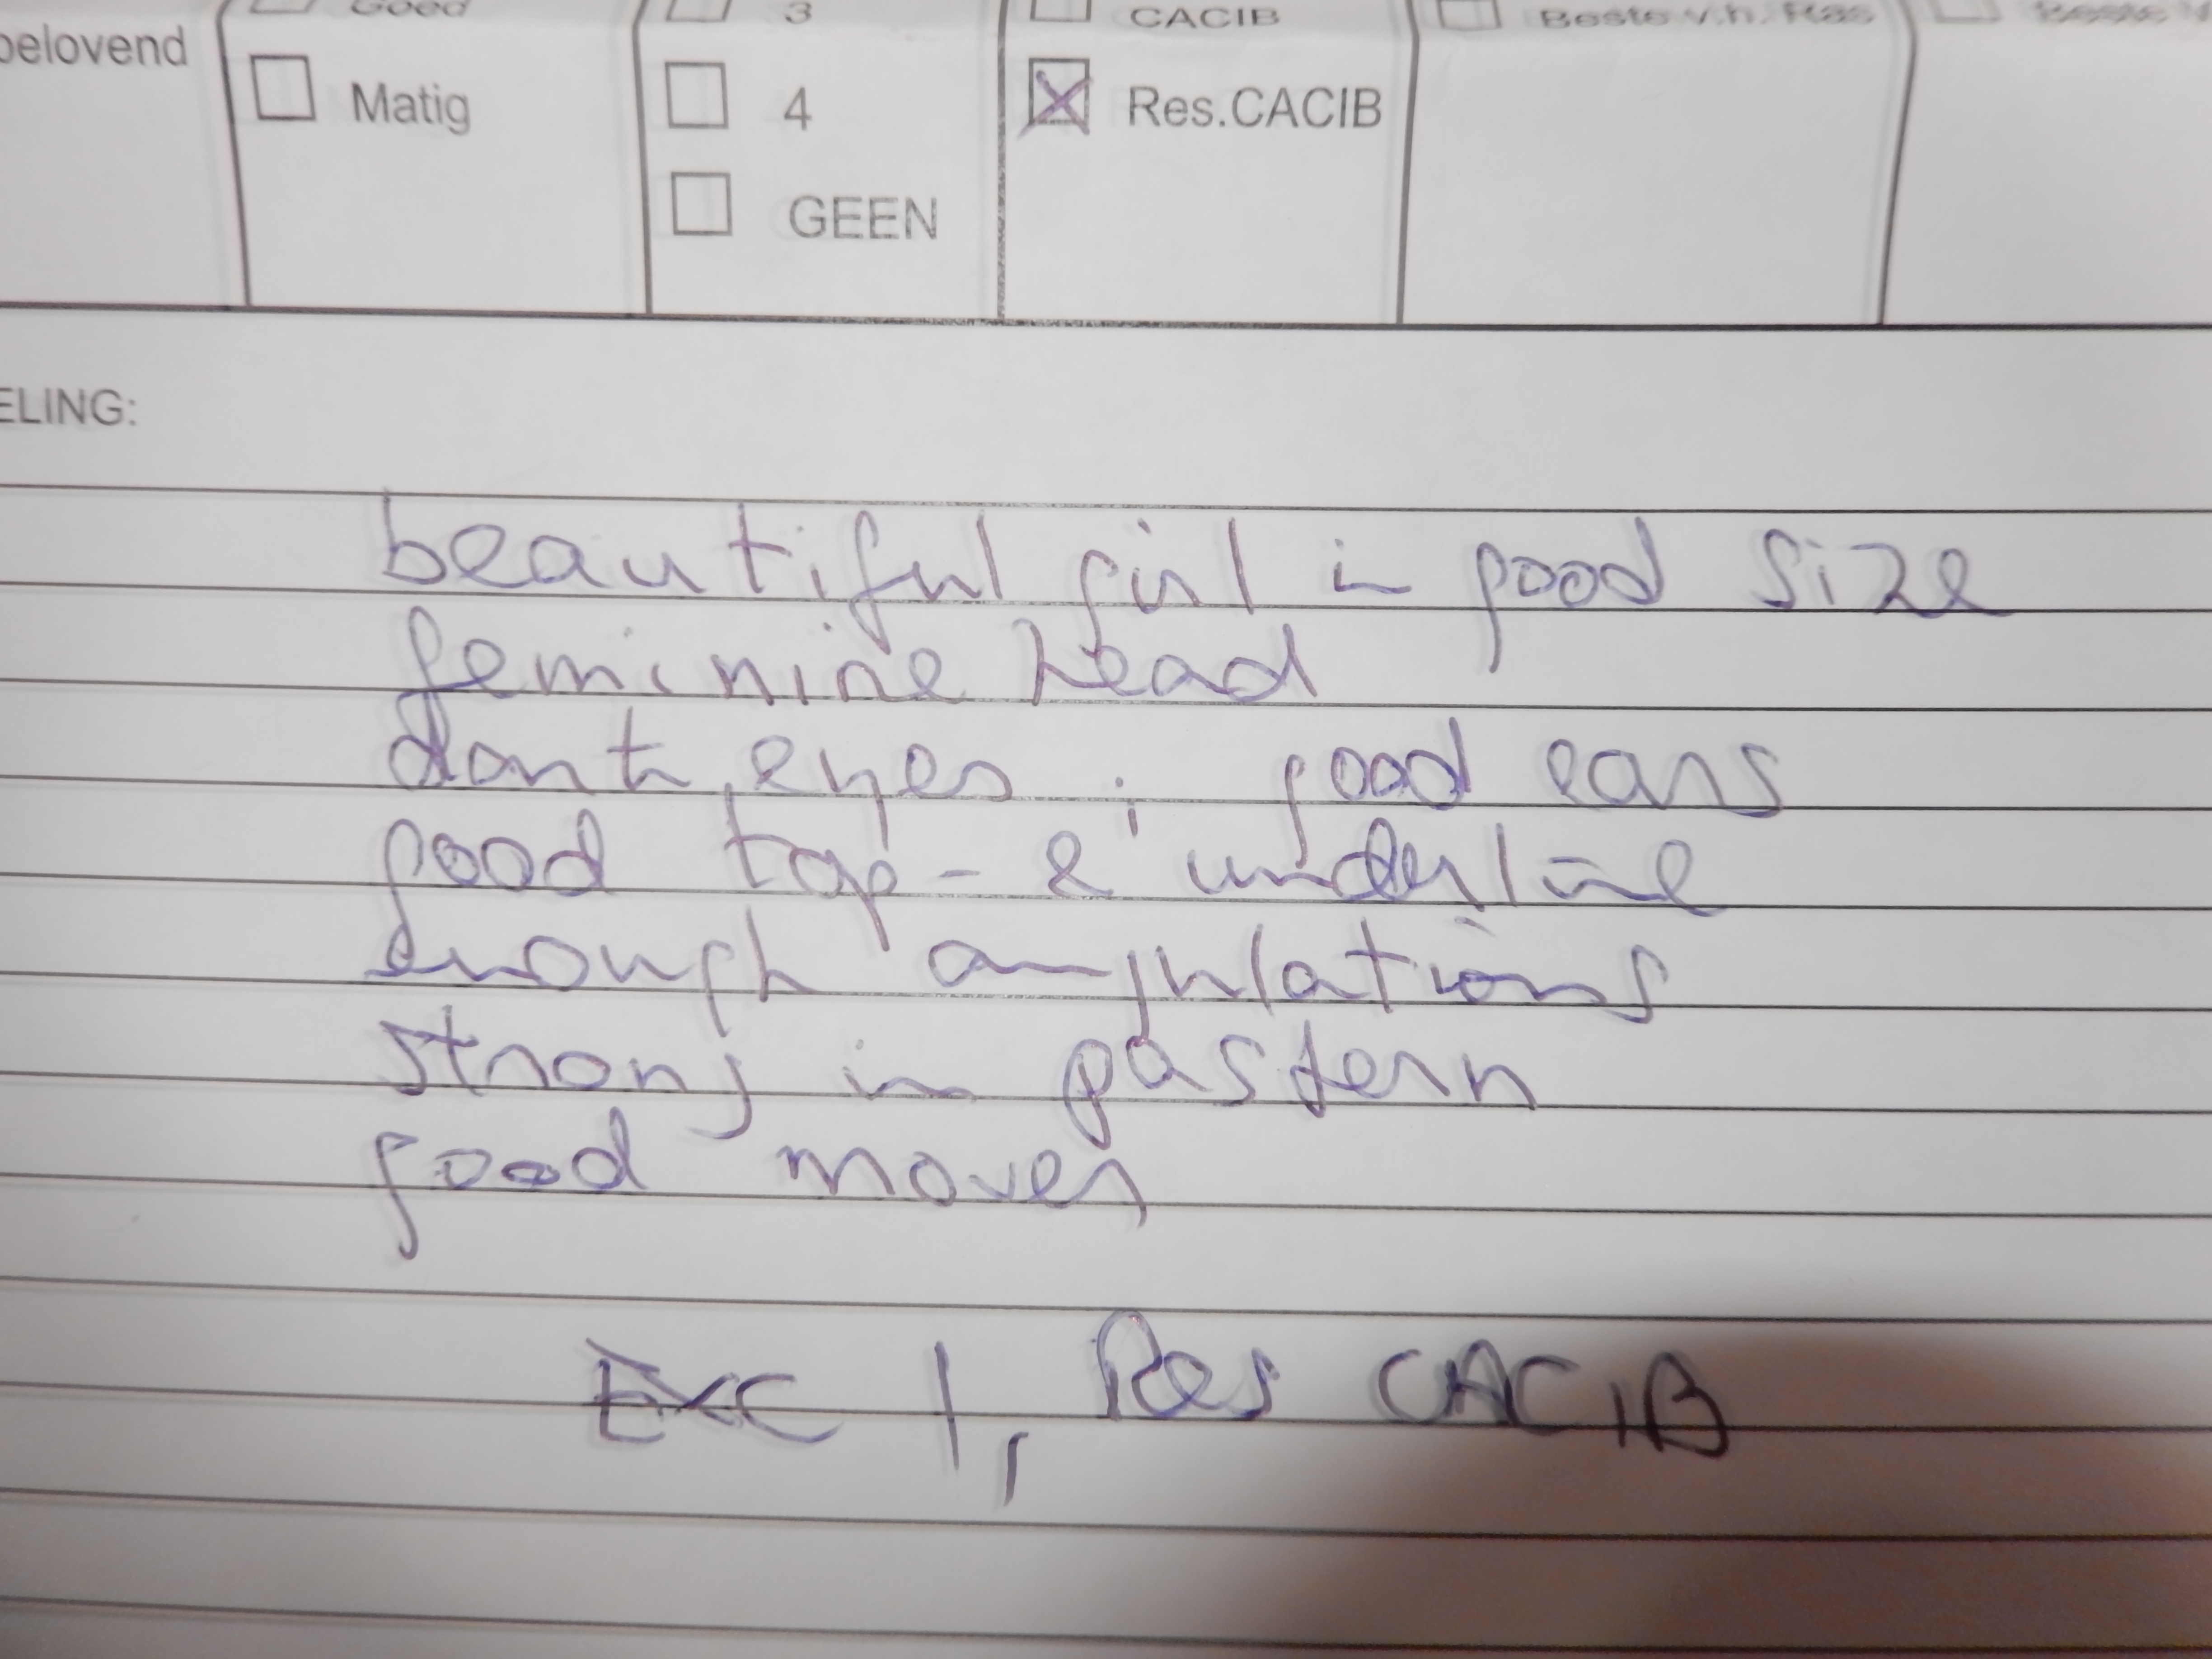 Goed 3 CACIB Beste v.h. Ras Beste
belovend Matig 4 Res.CACIB
GEEN
ELING:
beautiful girl in good size
feminine head
dark eyes, good ears
good top- & underline
enough angulations
strong in pastern
good mover
Exc 1, Res CACIB